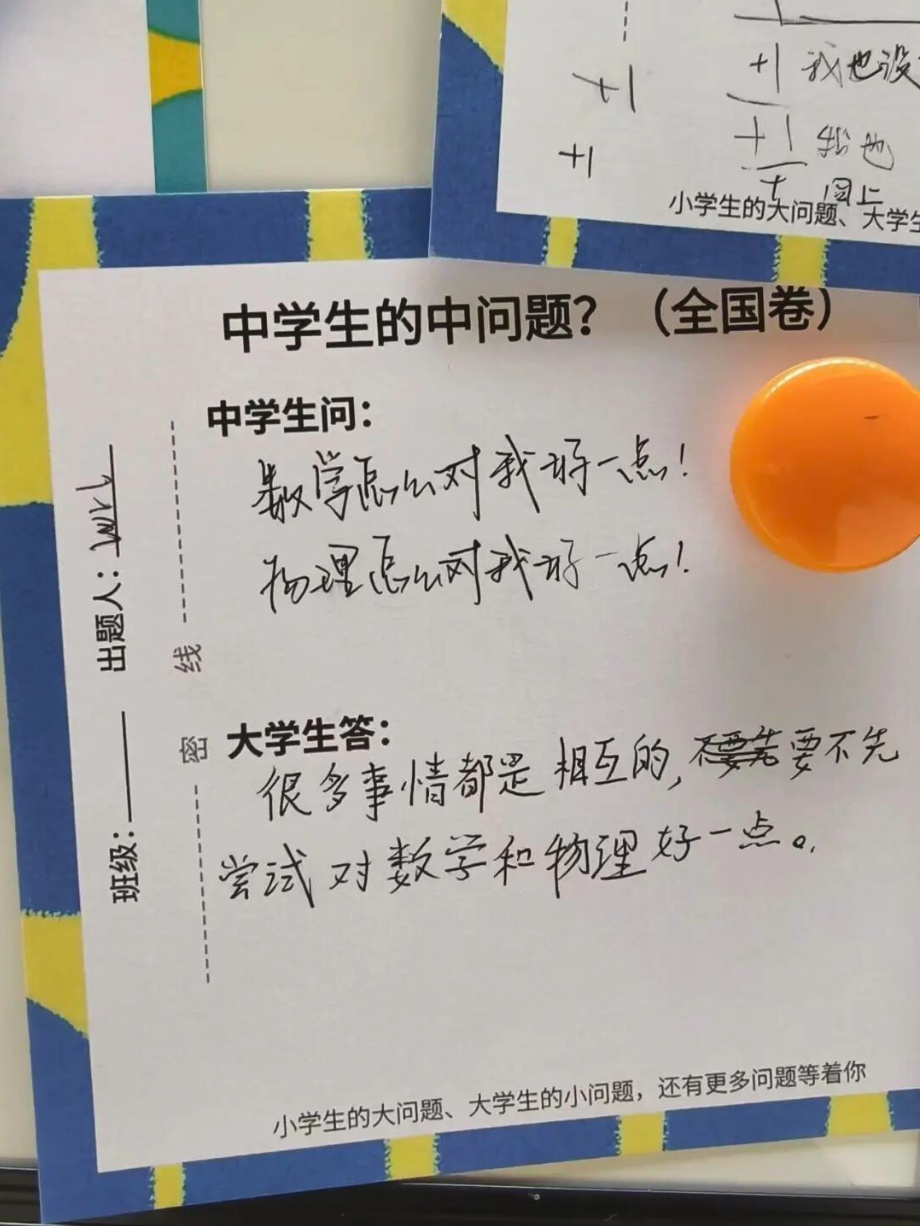 +1
+1
+1 我也没
+1 我也
+ 同上
小学生的大问题、大学生
中学生的中问题？（全国卷）
中学生问：
数学怎么对我好一点！
物理怎么对我好一点！
出题人：
班级：
线
密
大学生答：
很多事情都是相互的，不要先要不先
尝试对数学和物理好一点。
小学生的大问题、大学生的小问题，还有更多问题等着你